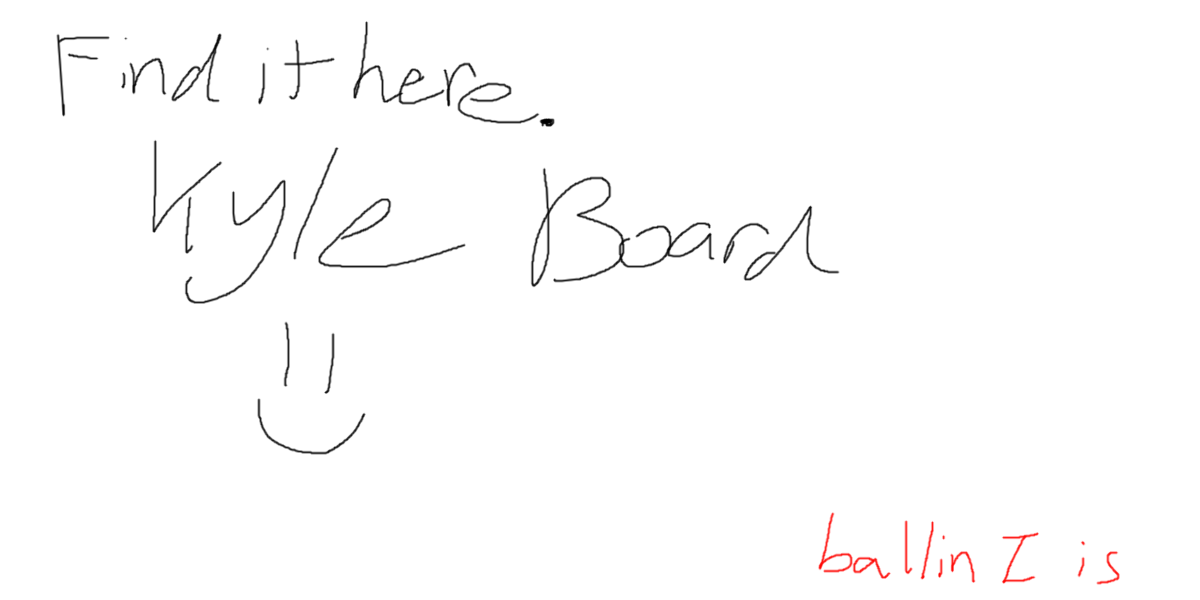 Find it here.
Kyle Board
ballin I is